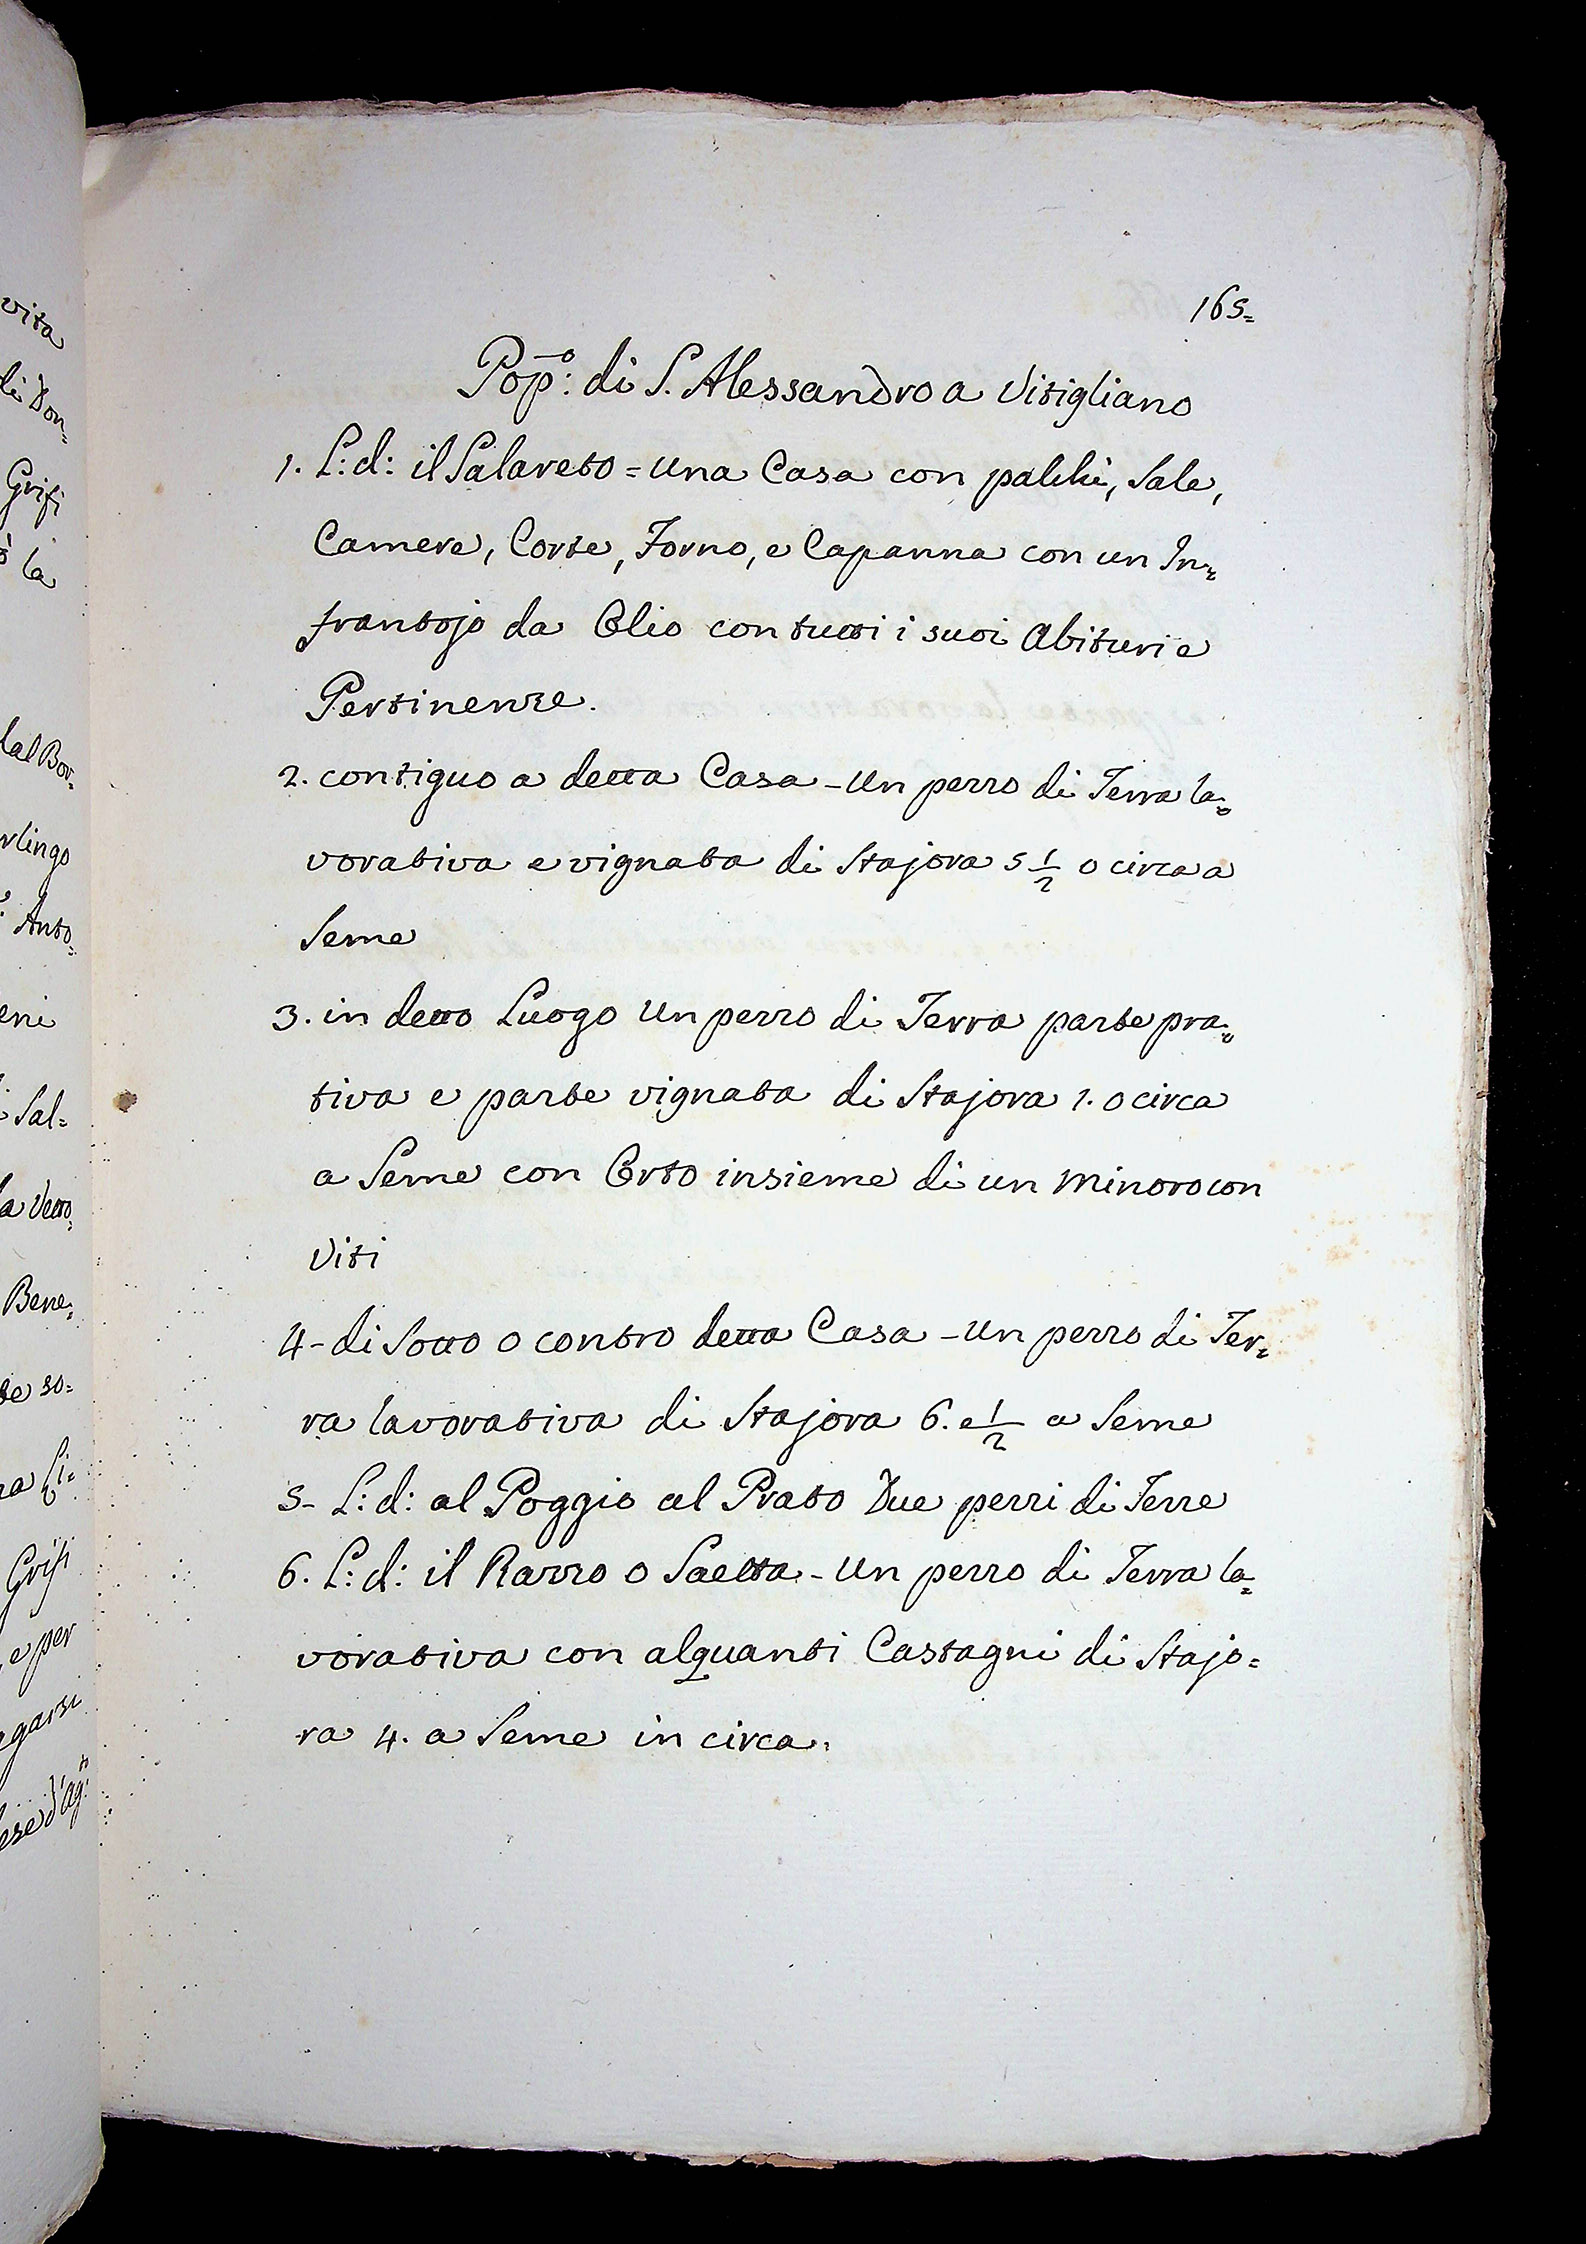 vita
di Don=
Grifi
la
dal Bor=
rlingo
Anto=
eni
Sal=
a Vetto=
Bene=
te so=
na Li=
Grifi
, e per
agarsi
ese d'ag.
165=
Pop.o: di S. Alessandro a Vitigliano
1. L: d: il Salareto = Una Casa con palchi, Sale,
Camere, Corte, Forno, e Capanna con un In=
frantojo da Olio con tutti i suoi Abituri e
Pertinenze.
2. contiguo a detta Casa - Un pezzo di Terra la=
vorativa e vignata di Stajora 5 1/2 o circa a
Seme
3. in detto Luogo Un pezzo di Terra parte pra=
tiva e parte vignata di Stajora 1. o circa
a Seme con Orto insieme di un minoro con
Viti
4 - di Sotto o contro detta Casa - Un pezzo di Ter=
ra lavorativa di Stajora 6. e 1/2 a Seme
5 - L: d: al Poggio al Prato Due pezzi di Terre
6. L: d: il Razzo o Saetta - Un pezzo di Terra la=
vorativa con alquanti Castagni di Stajo=
ra 4. a Seme in circa.